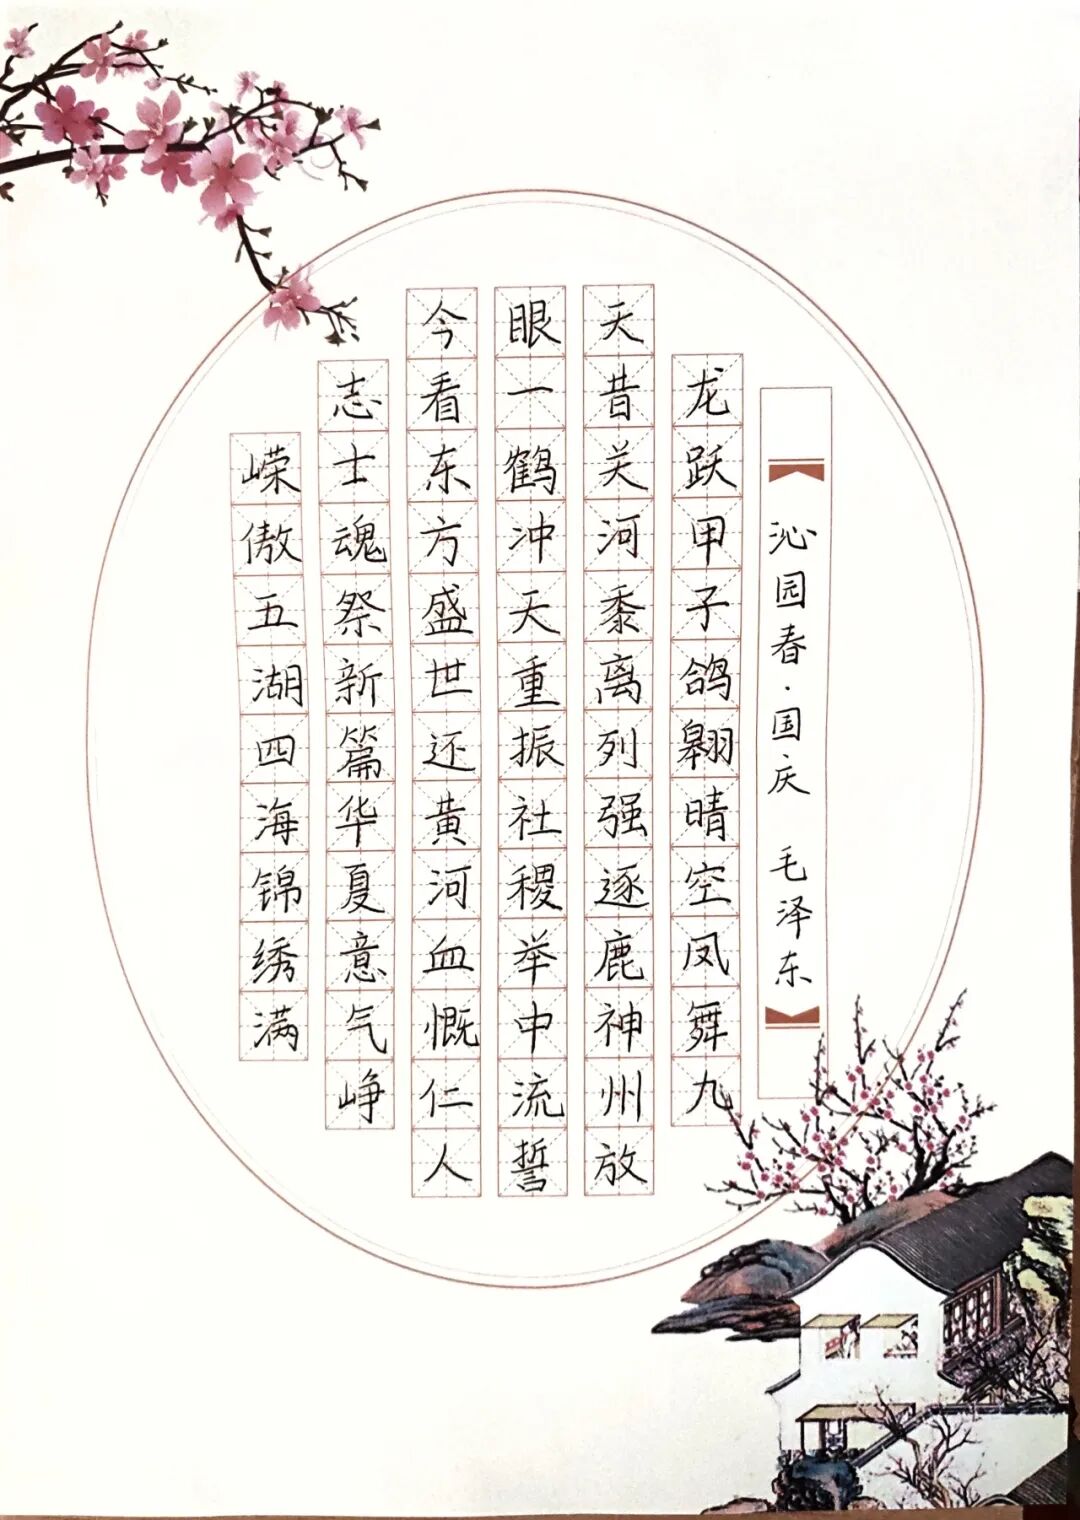 沁园春·国庆 毛泽东
龙跃甲子鸽翱晴空凤舞九
天昔关河黍离列强逐鹿神州放
眼一鹤冲天重振社稷举中流誓
今看东方盛世还黄河血慨仁人
志士魂祭新篇华夏意气峥
嵘傲五湖四海锦绣满